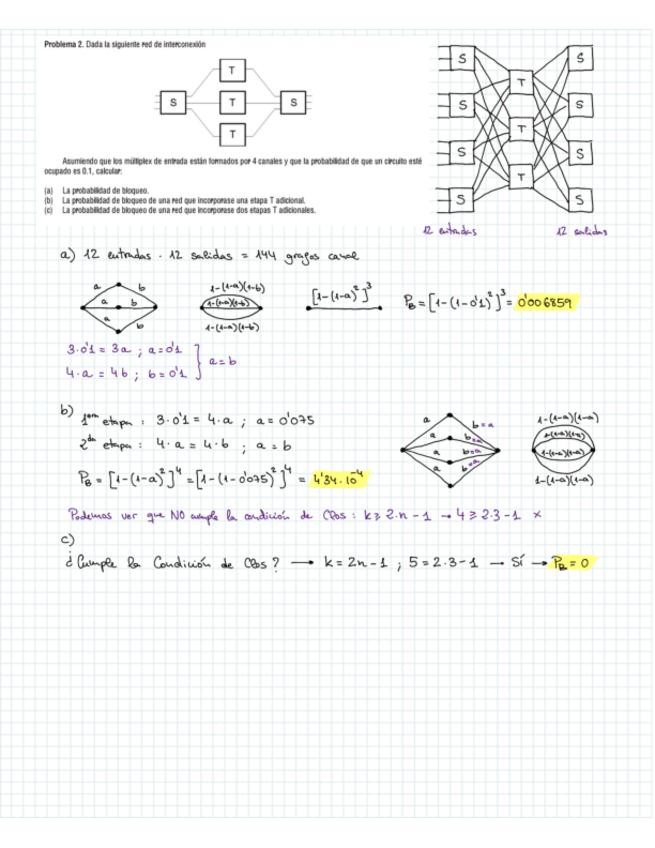 Problema 2. Dada la siguiente red de interconexión
T
S T S
T
S S
T
S S
T
S S
T
S S
12 entradas 12 salidas
Asumiendo que los múltiplex de entrada están formados por 4 canales y que la probabilidad de que un circuito esté
ocupado es 0.1, calcular:
(a) La probabilidad de bloqueo.
(b) La probabilidad de bloqueo de una red que incorporase una etapa T adicional.
(c) La probabilidad de bloqueo de una red que incorporase dos etapas T adicionales.
a) 12 entradas · 12 salidas = 144 grafos canal
a b
a b
a b
1-(1-a)(1-b)
1-(1-a)(1-b)
1-(1-a)(1-b)
[1-(1-a)²]³
P_B = [1-(1-0'1)²]³ = 0'006859
3·0'1 = 3a ; a=0'1
4·a = 4b ; b=0'1 } a=b
b) 1era etapa : 3·0'1 = 4·a ; a=0'075
2da etapa : 4·a = 4·b ; a=b
a b=a
a b=a
a b=a
a b=a
1-(1-a)(1-a)
1-(1-a)(1-a)
1-(1-a)(1-a)
1-(1-a)(1-a)
P_B = [1-(1-a)²]⁴ = [1-(1-0'075)²]⁴ = 4'34·10⁻⁴
Podemos ver que NO cumple la condición de Clos : k ≥ 2·n-1 → 4 ≥ 2·3-1 ×
c)
¿Cumple la Condición de Clos? → k = 2n-1 ; 5 = 2·3-1 → Sí → P_B = 0